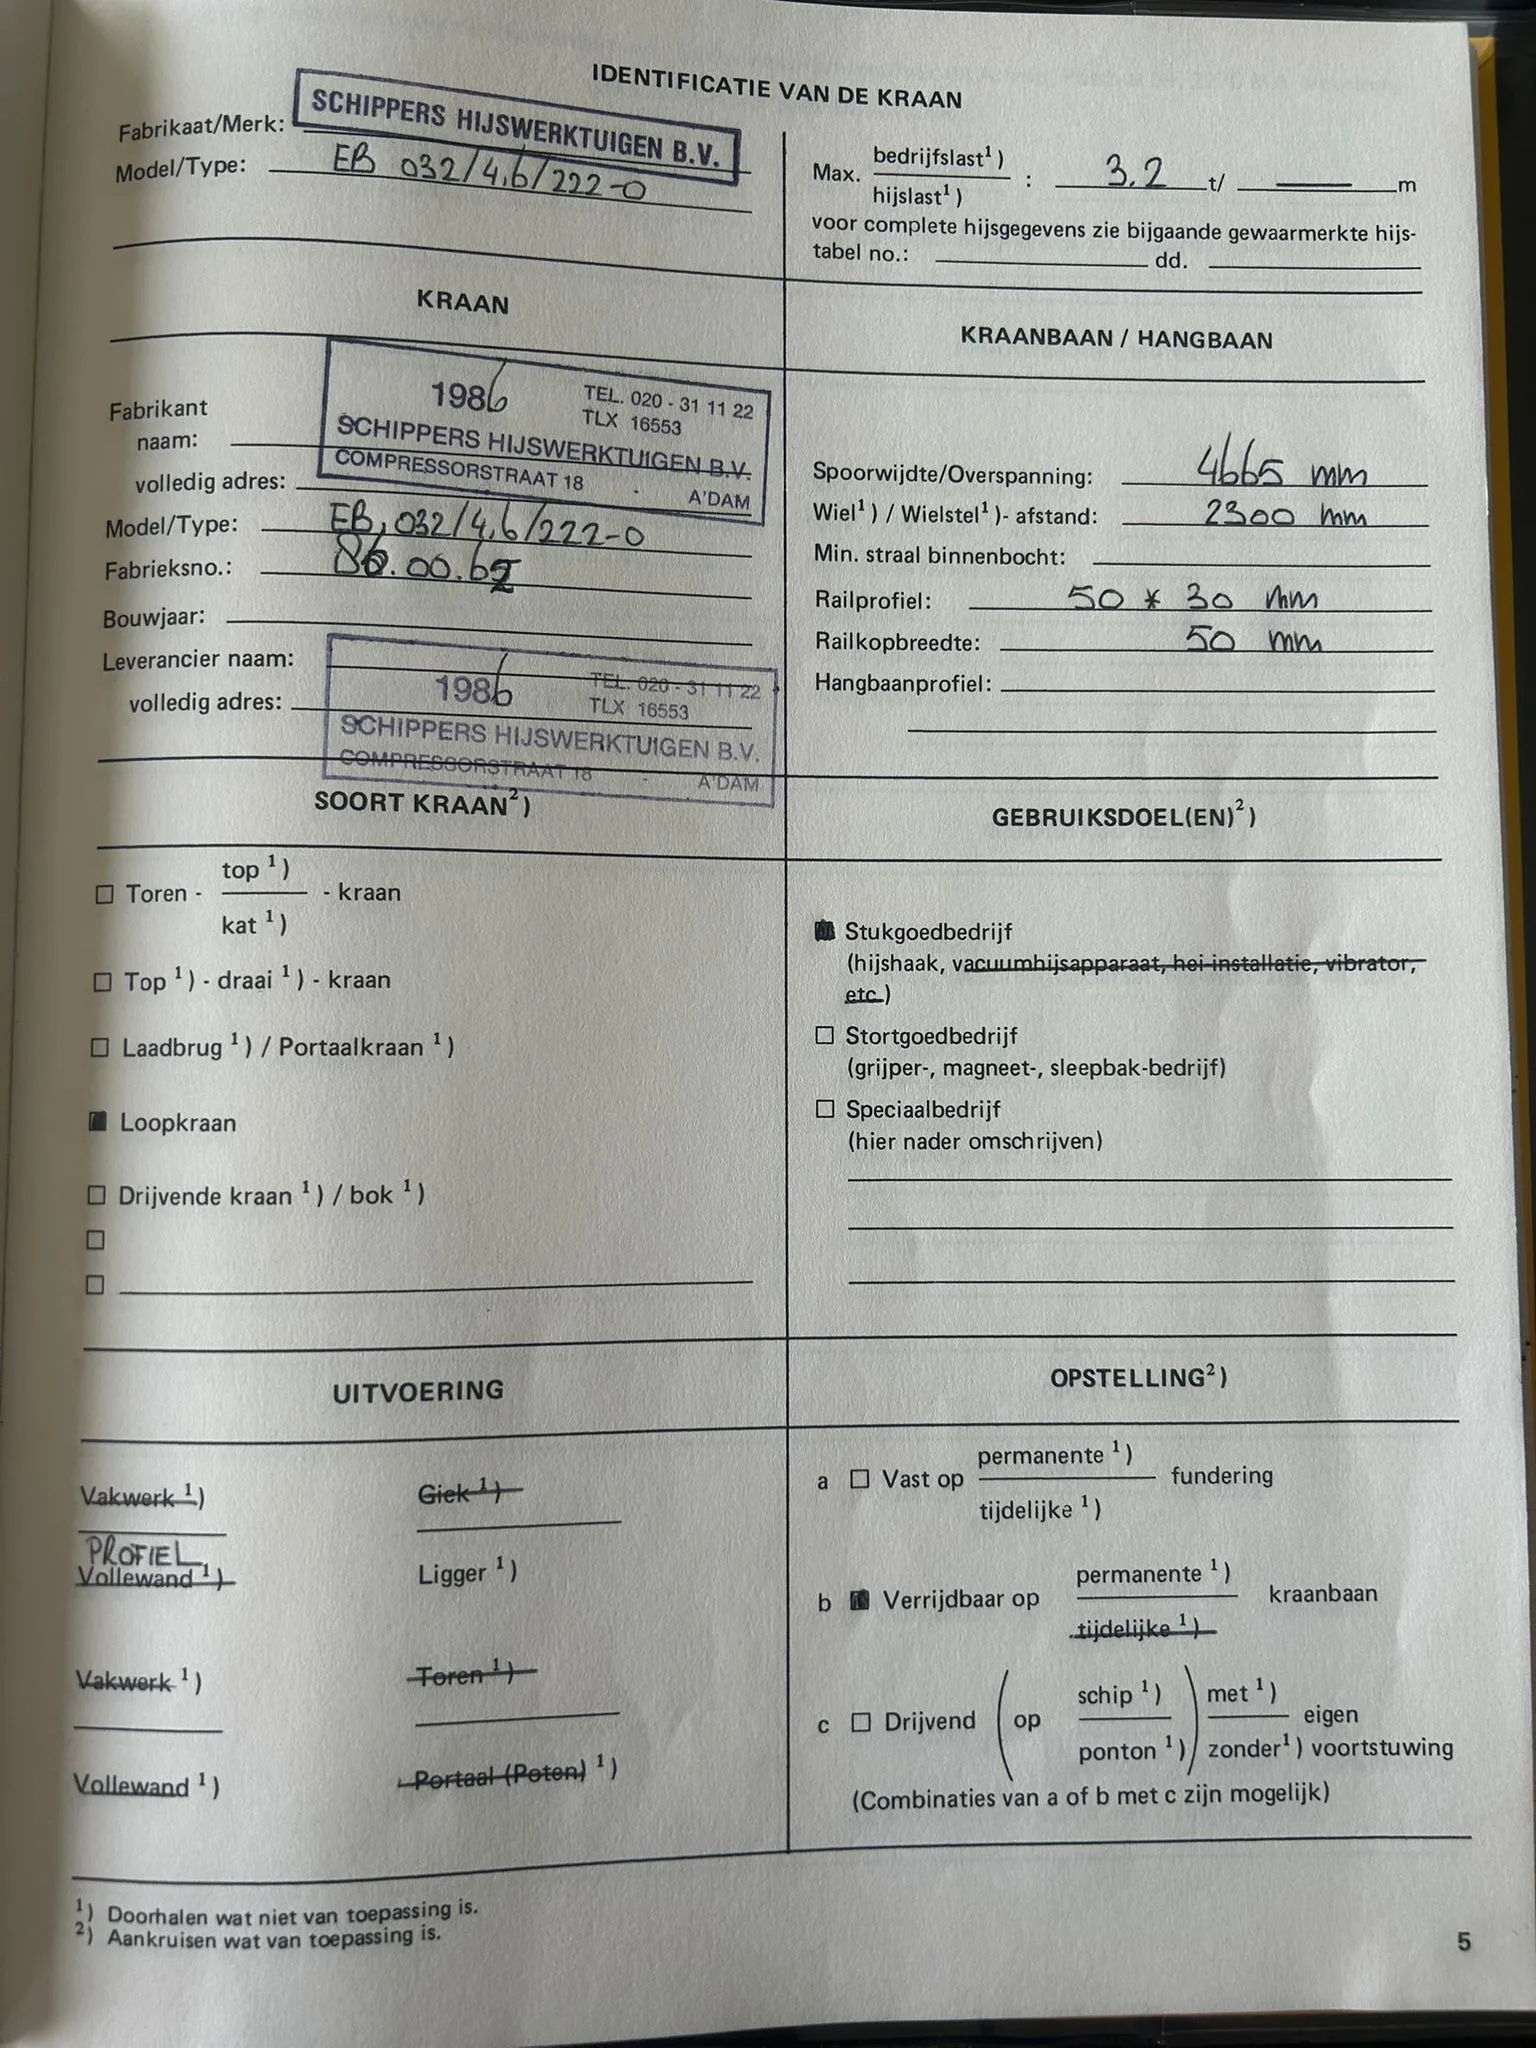 IDENTIFICATIE VAN DE KRAAN
Fabrikaat/Merk: SCHIPPERS HIJSWERKTUIGEN B.V.
Model/Type: EB 032/4,6/222-0
Max. bedrijfslast¹) / hijslast¹) : 3.2 t/ — m
voor complete hijsgegevens zie bijgaande gewaarmerkte hijs-
tabel no.: dd.
KRAAN
Fabrikant
naam:
volledig adres:
1986 TEL. 020 - 31 11 22
TLX 16553
SCHIPPERS HIJSWERKTUIGEN B.V.
COMPRESSORSTRAAT 18 - A'DAM
Model/Type: EB, 032/4,6/222-0
Fabrieksno.: 86.00.62
Bouwjaar:
Leverancier naam:
volledig adres:
1986 TEL. 020 - 31 11 22
TLX 16553
SCHIPPERS HIJSWERKTUIGEN B.V.
COMPRESSORSTRAAT 18 - A'DAM
KRAANBAAN / HANGBAAN
Spoorwijdte/Overspanning: 4665 mm
Wiel¹) / Wielstel¹)- afstand: 2300 mm
Min. straal binnenbocht:
Railprofiel: 50 * 30 mm
Railkopbreedte: 50 mm
Hangbaanprofiel:
SOORT KRAAN²)
☐ Toren - top¹) / kat¹) - kraan
☐ Top¹) - draai¹) - kraan
☐ Laadbrug¹) / Portaalkraan¹)
■ Loopkraan
☐ Drijvende kraan¹) / bok¹)
☐
☐
GEBRUIKSDOEL(EN)²)
■ Stukgoedbedrijf
(hijshaak, vacuumhijsapparaat, hei-installatie, vibrator,
etc.)
☐ Stortgoedbedrijf
(grijper-, magneet-, sleepbak-bedrijf)
☐ Speciaalbedrijf
(hier nader omschrijven)
UITVOERING
Vakwerk¹) Giek¹)
PROFIEL
Vollewand¹) Ligger¹)
Vakwerk¹) Toren¹)
Vollewand¹) Portaal (Poten)¹)
OPSTELLING²)
a ☐ Vast op permanente¹) / tijdelijke¹) fundering
b ■ Verrijdbaar op permanente¹) / tijdelijke¹) kraanbaan
c ☐ Drijvend (op schip¹) / ponton¹)) met¹) / zonder¹) eigen voortstuwing
(Combinaties van a of b met c zijn mogelijk)
¹) Doorhalen wat niet van toepassing is.
²) Aankruisen wat van toepassing is.
5